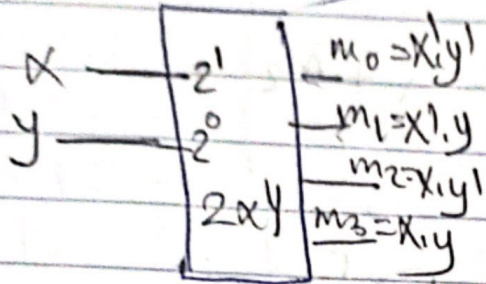 x 2¹ m₀ = x'.y'
y 2⁰ m₁ = x'.y
m₂ = x.y'
2x4 m₃ = x.y